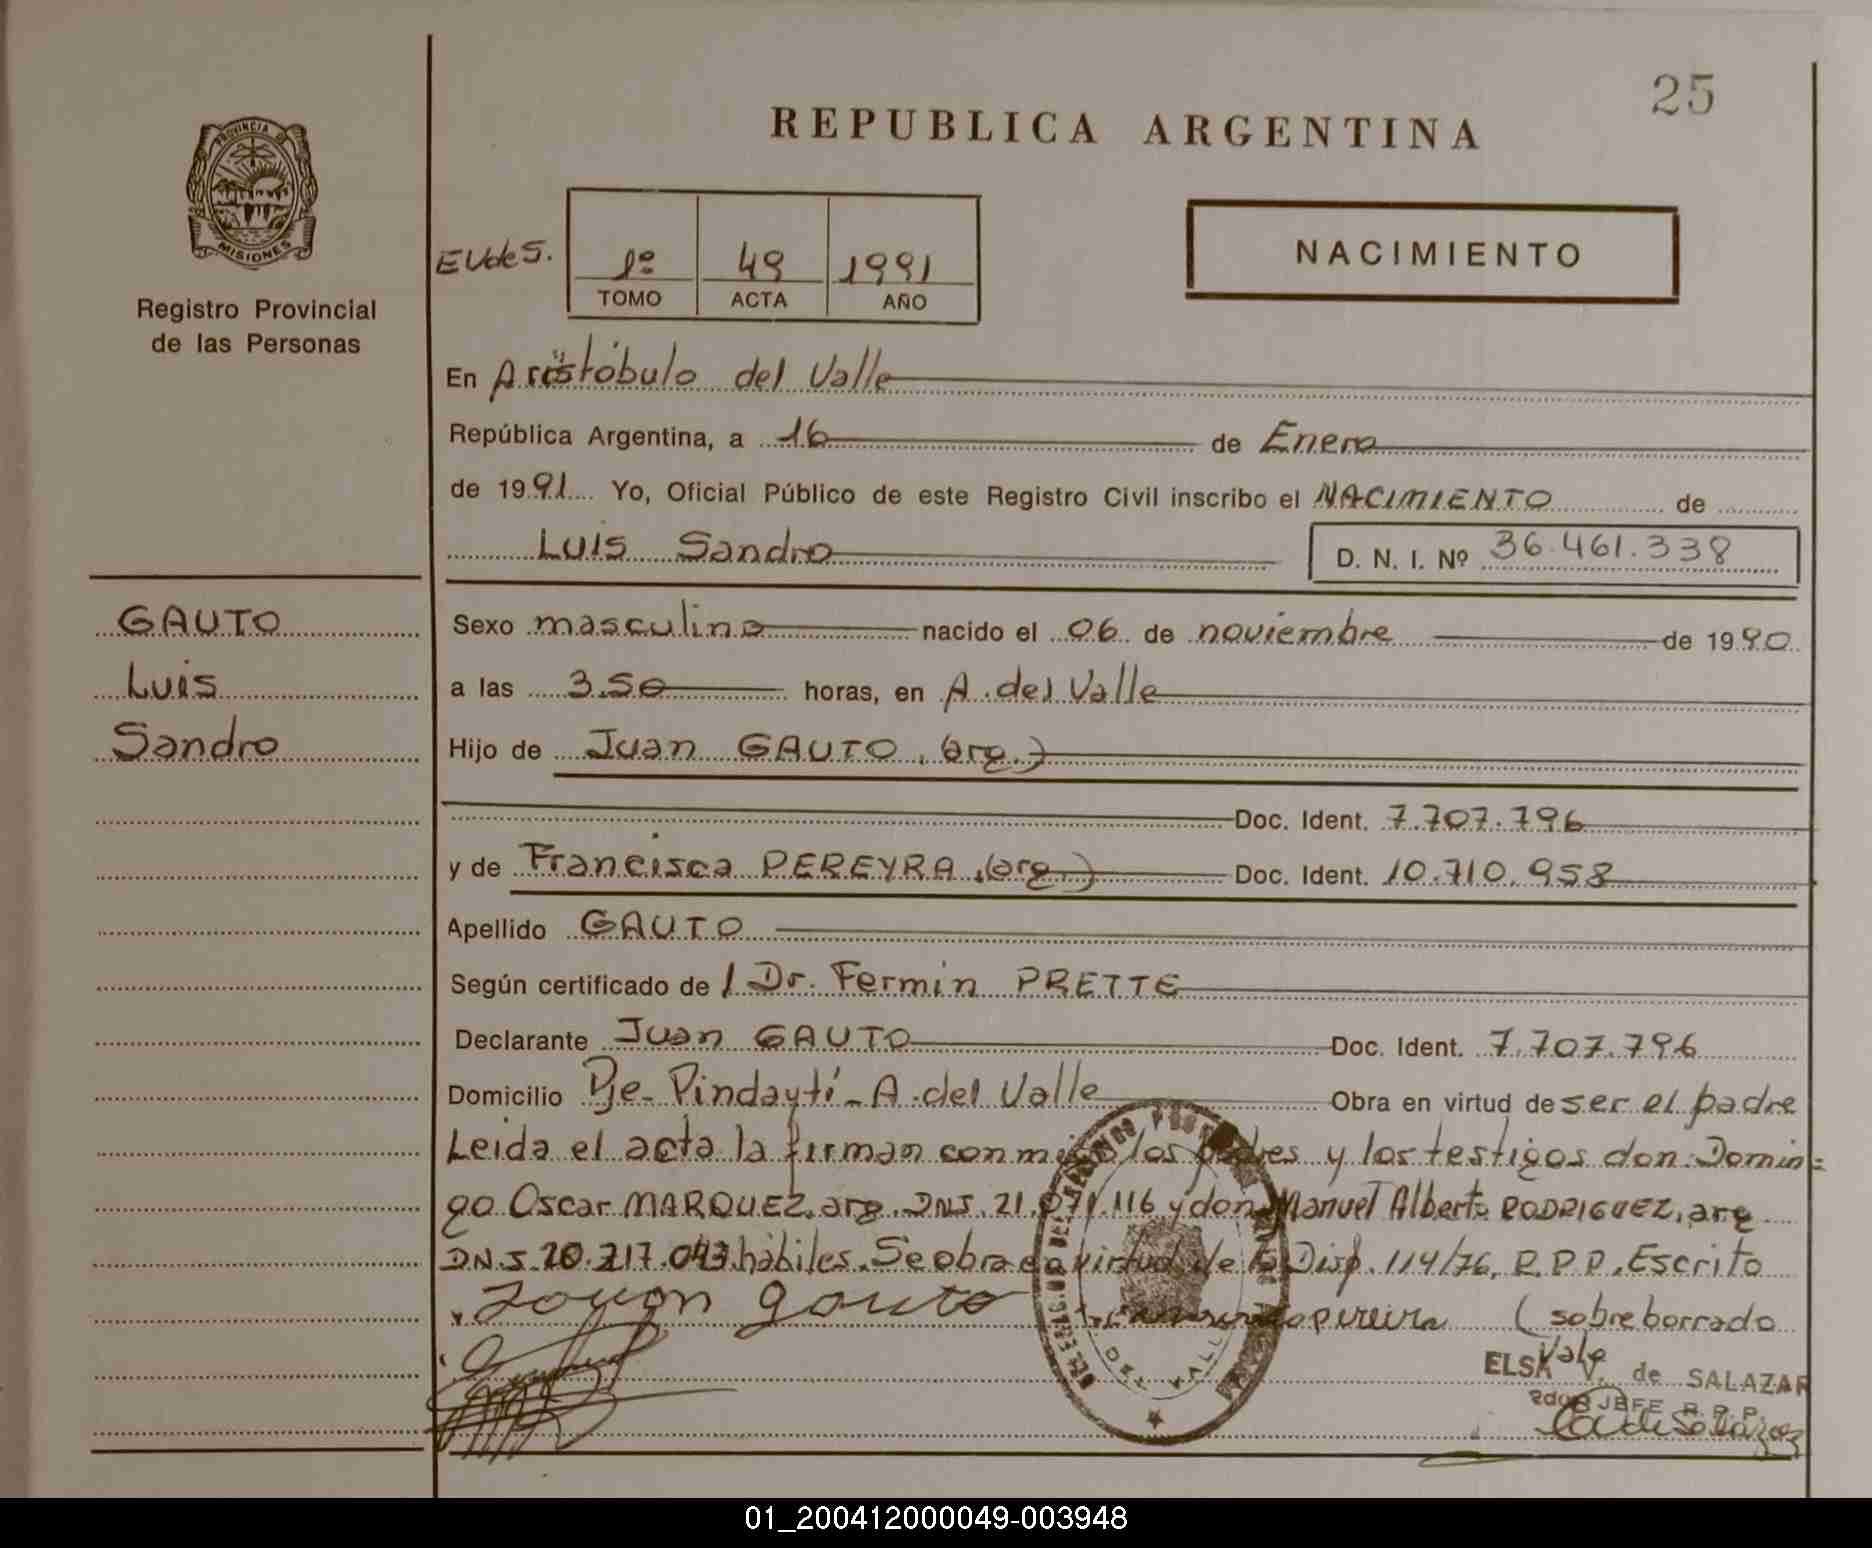 25
REPUBLICA ARGENTINA
PROVINCIA DE
MISIONES
Registro Provincial
de las Personas
EVdeS.
1º 49 1991
TOMO ACTA AÑO
NACIMIENTO
En Aristóbulo del Valle
República Argentina, a 16 de Enero
de 1991 Yo, Oficial Público de este Registro Civil inscribo el NACIMIENTO de
Luis Sandro D. N. I. Nº 36.461.338
GAUTO
Luis
Sandro
Sexo masculino nacido el 06 de noviembre de 1990
a las 3.50 horas, en A. del Valle
Hijo de Juan GAUTO, (arg.)
Doc. Ident. 7.707.796
y de Francisca PEREYRA, (arg.) Doc. Ident. 10.710.958
Apellido GAUTO
Según certificado de / Dr. Fermin PRETTE
Declarante Juan GAUTO Doc. Ident. 7.707.796
Domicilio Pje- Pindaytí- A. del Valle Obra en virtud de ser el padre
Leida el acta la firman conmigo los padres y los testigos don Domin=
go Oscar MARQUEZ, arg. DNI. 21.071.116 y don Manuel Alberto RODRIGUEZ, arg
DN.I. 20.217.043 hábiles. Se obra en virtud de la Disp. 114/76, R.P.P. Escrito
gauto pereira (sobreborrado
Vale
ELSA V. de SALAZAR
2do. JEFE R. P. P.
DEL VALLE
01_200412000049-003948